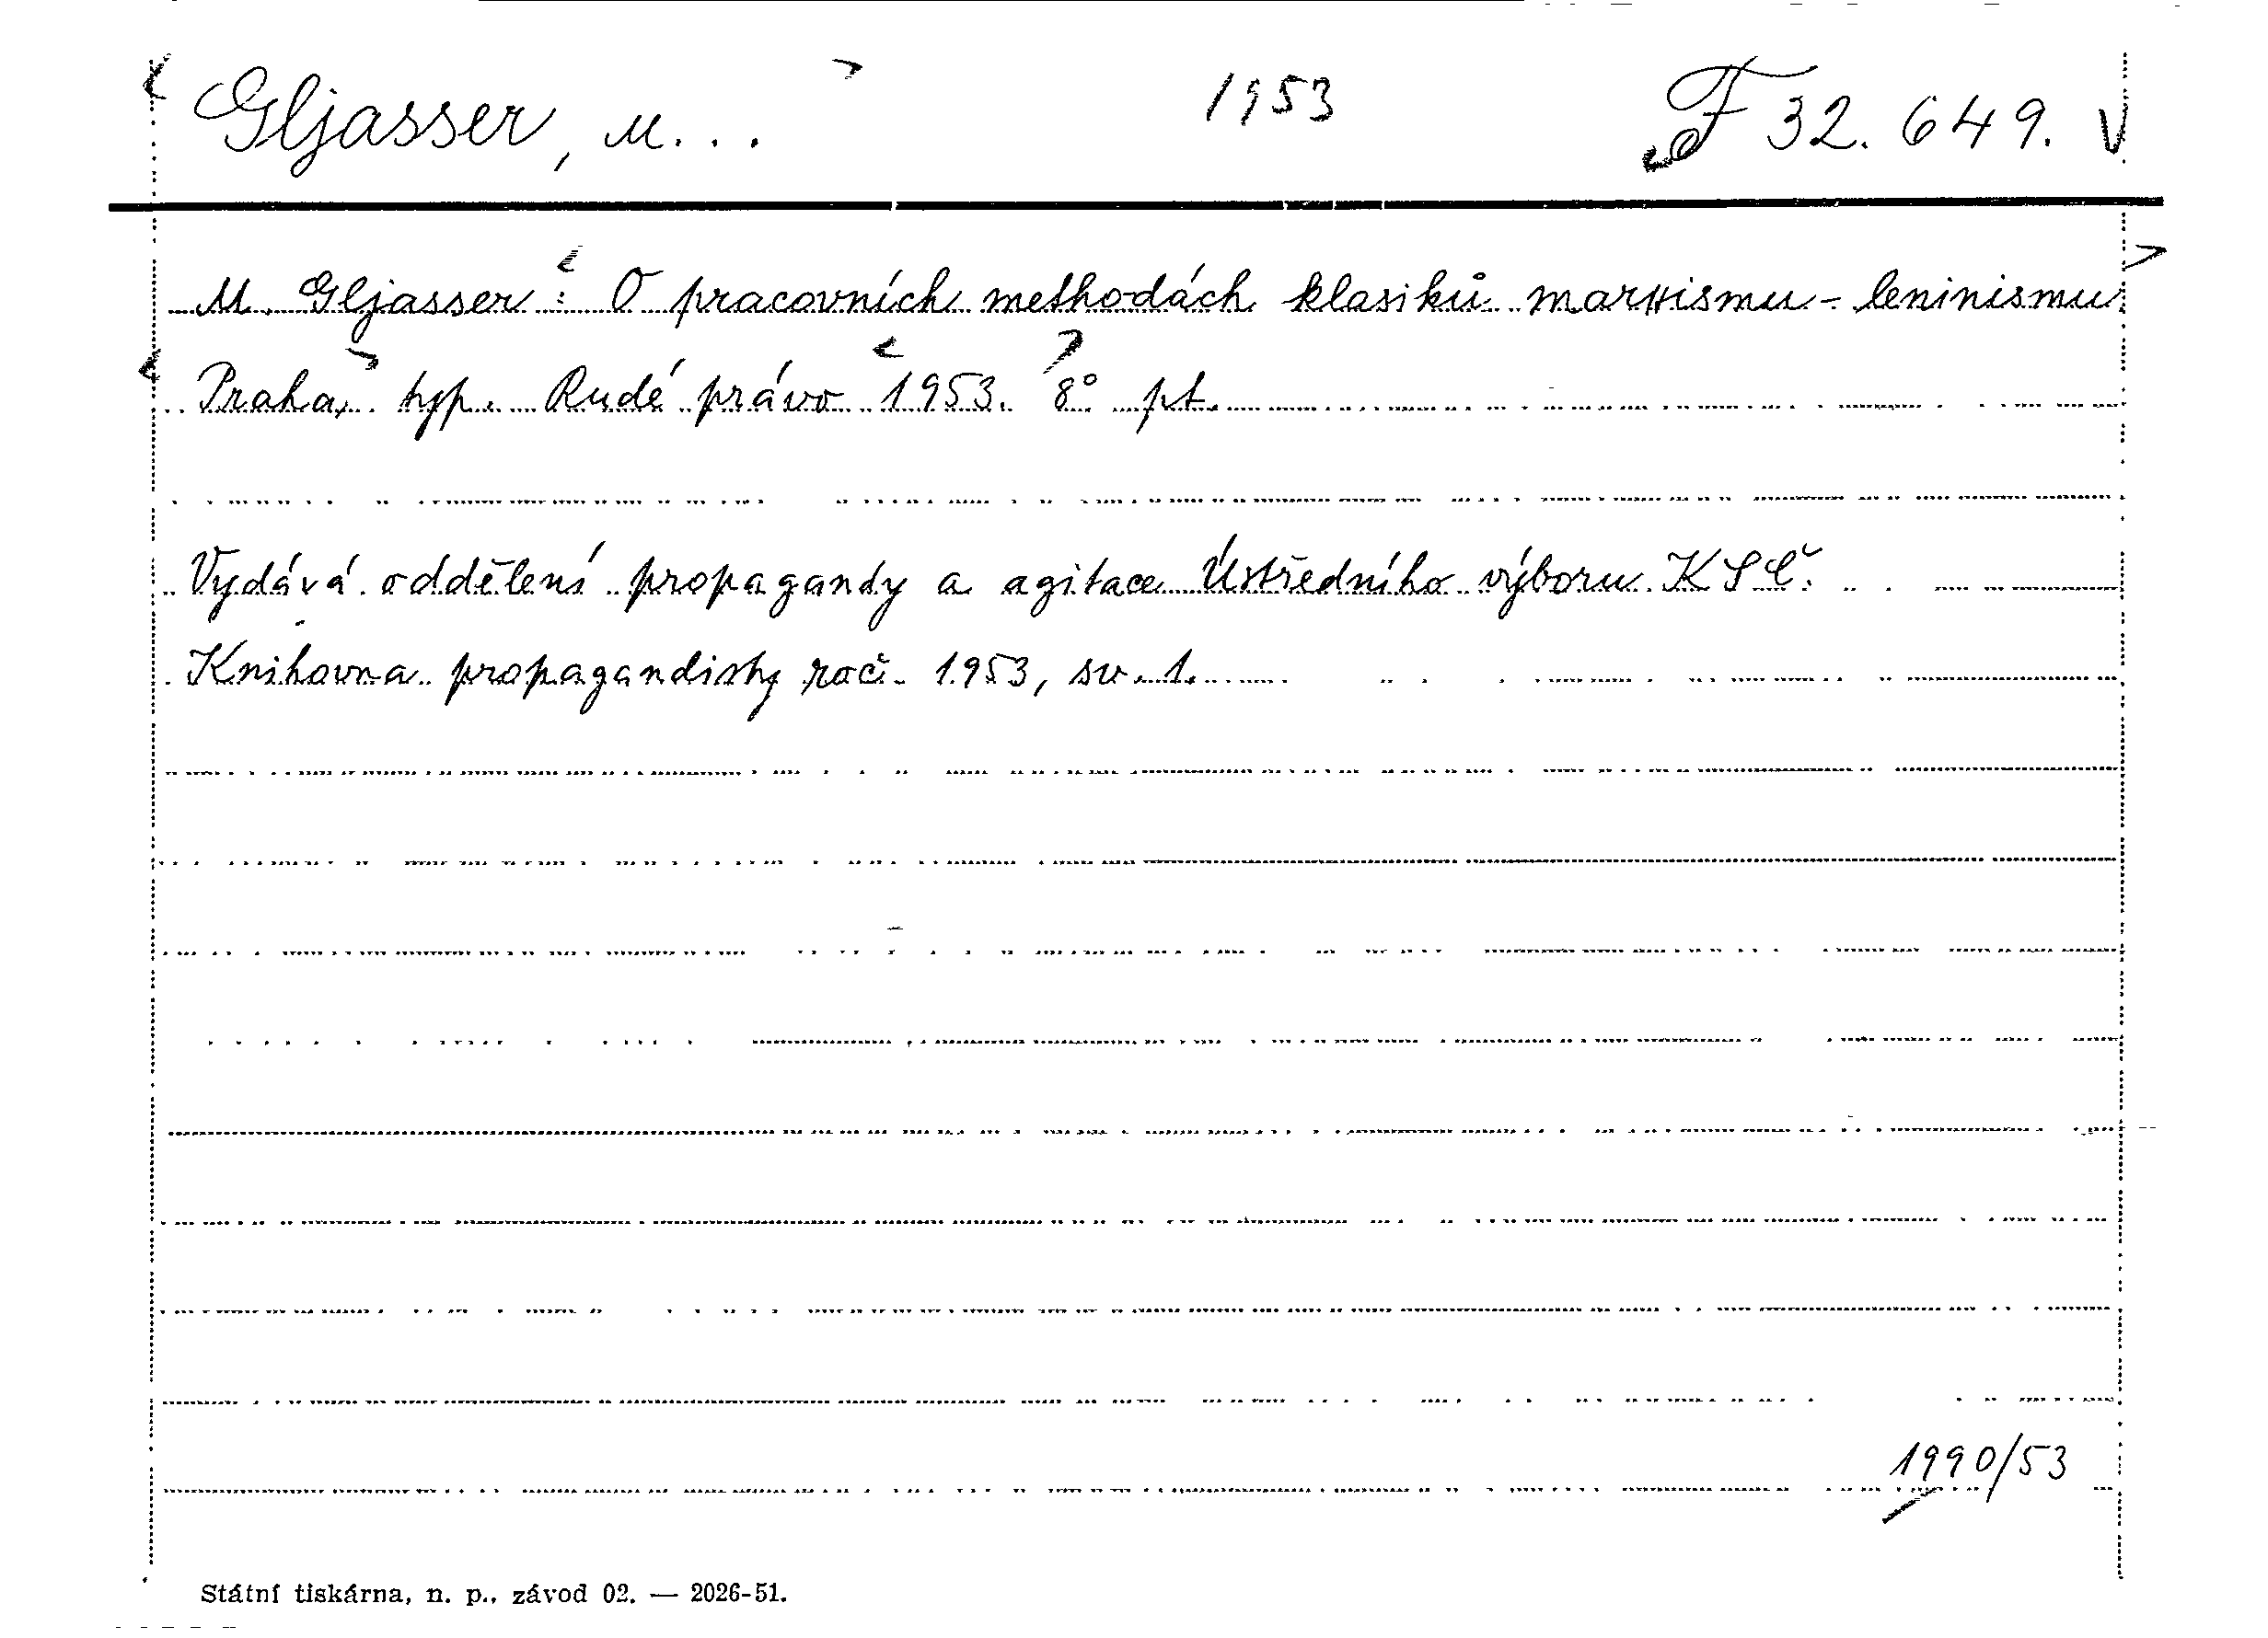 Gljasser, M... 1953 F 32.649. V
M. Gljasser: O pracovních methodách klasiků marxismu-leninismu
Praha, typ. Rudé právo 1953. 8° pt.
Vydává oddělení propagandy a agitace Ústředního výboru KSČ.
Knihovna propagandisty roč. 1953, sv. 1.
1990/53
Státní tiskárna, n. p., závod 02. — 2026-51.